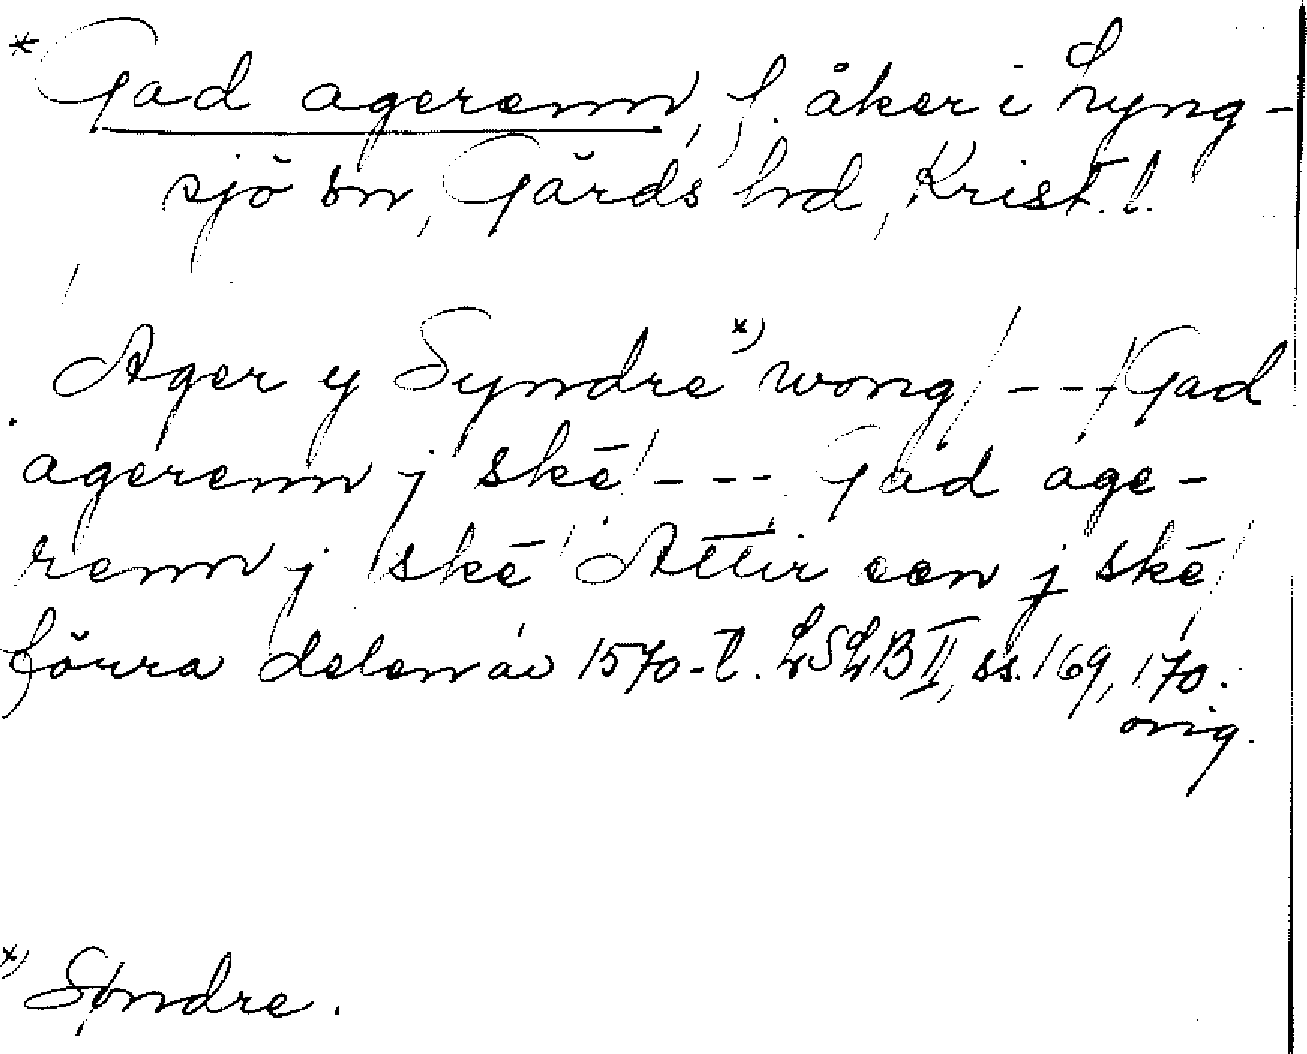 * Gad agerenn, f. åker i Lyng-
sjö sn, Gärds hd, Krist. l.
Ager y Syndre x) wong / --- / Gad
agerenn j skē / --- Gad age-
renn j skē / Attir een j skē /
förra delen av 1570-t. LSLB II, ss. 169, 170.
orig.
x) Søndre.